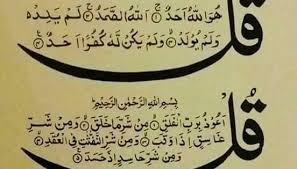 قُلْ
هُوَ اللهُ اَحَدٌ ۝ اَللهُ الصَّمَدُ ۝ لَمْ يَلِدْ ۝
وَلَمْ يُولَدْ ۝ وَلَمْ يَكُنْ لَهٗ كُفُوًا اَحَدٌ ۝
بِسْمِ اللهِ الرَّحْمٰنِ الرَّحِيْمِ
قُلْ
اَعُوْذُ بِرَبِّ الْفَلَقِ ۝ مِنْ شَرِّ مَا خَلَقَ ۝ وَمِنْ شَرِّ
غَاسِقٍ اِذَا وَقَبَ ۝ وَمِنْ شَرِّ النَّفّٰثٰتِ فِي الْعُقَدِ ۝
وَمِنْ شَرِّ حَاسِدٍ اِذَا حَسَدَ ۝